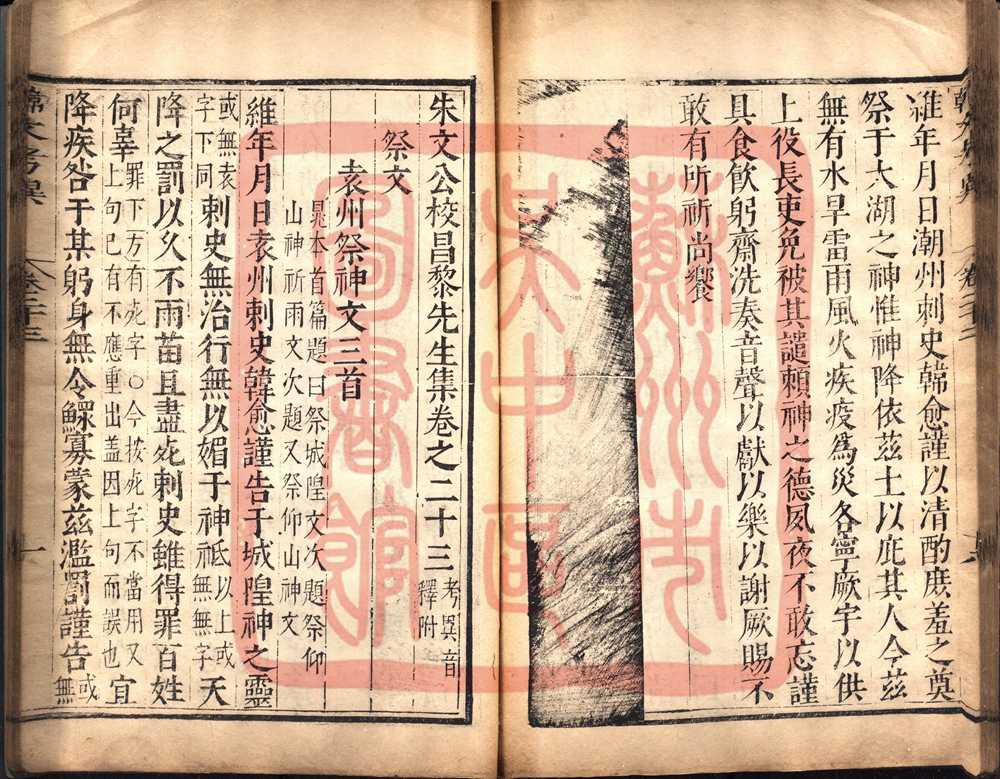 維年月日潮州刺史韓愈謹以清酌庶羞之奠
祭于大湖之神惟神降依茲土以庇其人今茲
無有水旱雷雨風火疾疫爲災各寧厥宇以供
上役長吏免被其譴賴神之德夙夜不敢忘謹
具食飲躬齋洗奏音聲以獻以樂以謝厥賜不
敢有所祈尚饗
朱文公校昌黎先生集卷之二十三
考異音
釋附
祭文
袁州祭神文三首
晁本首篇題曰祭城隍文次題祭仰
山神祈雨文次題又祭仰山神文
維年月日袁州刺史韓愈謹告于城隍神之靈
或無袁
字下同
刺史無治行無以媚于神祗
以上或
無無字
天
降之罰以久不雨苗且盡死刺史雖得罪百姓
何辜
罪下方有死字○今按死字不當用又
上句已有不應重出盖因上句而誤也
宜
降疾咎于某躬身無令鰥寡蒙茲濫罰謹告
或
無
卷二十三
一
蘇州市
吴中區
圖書館